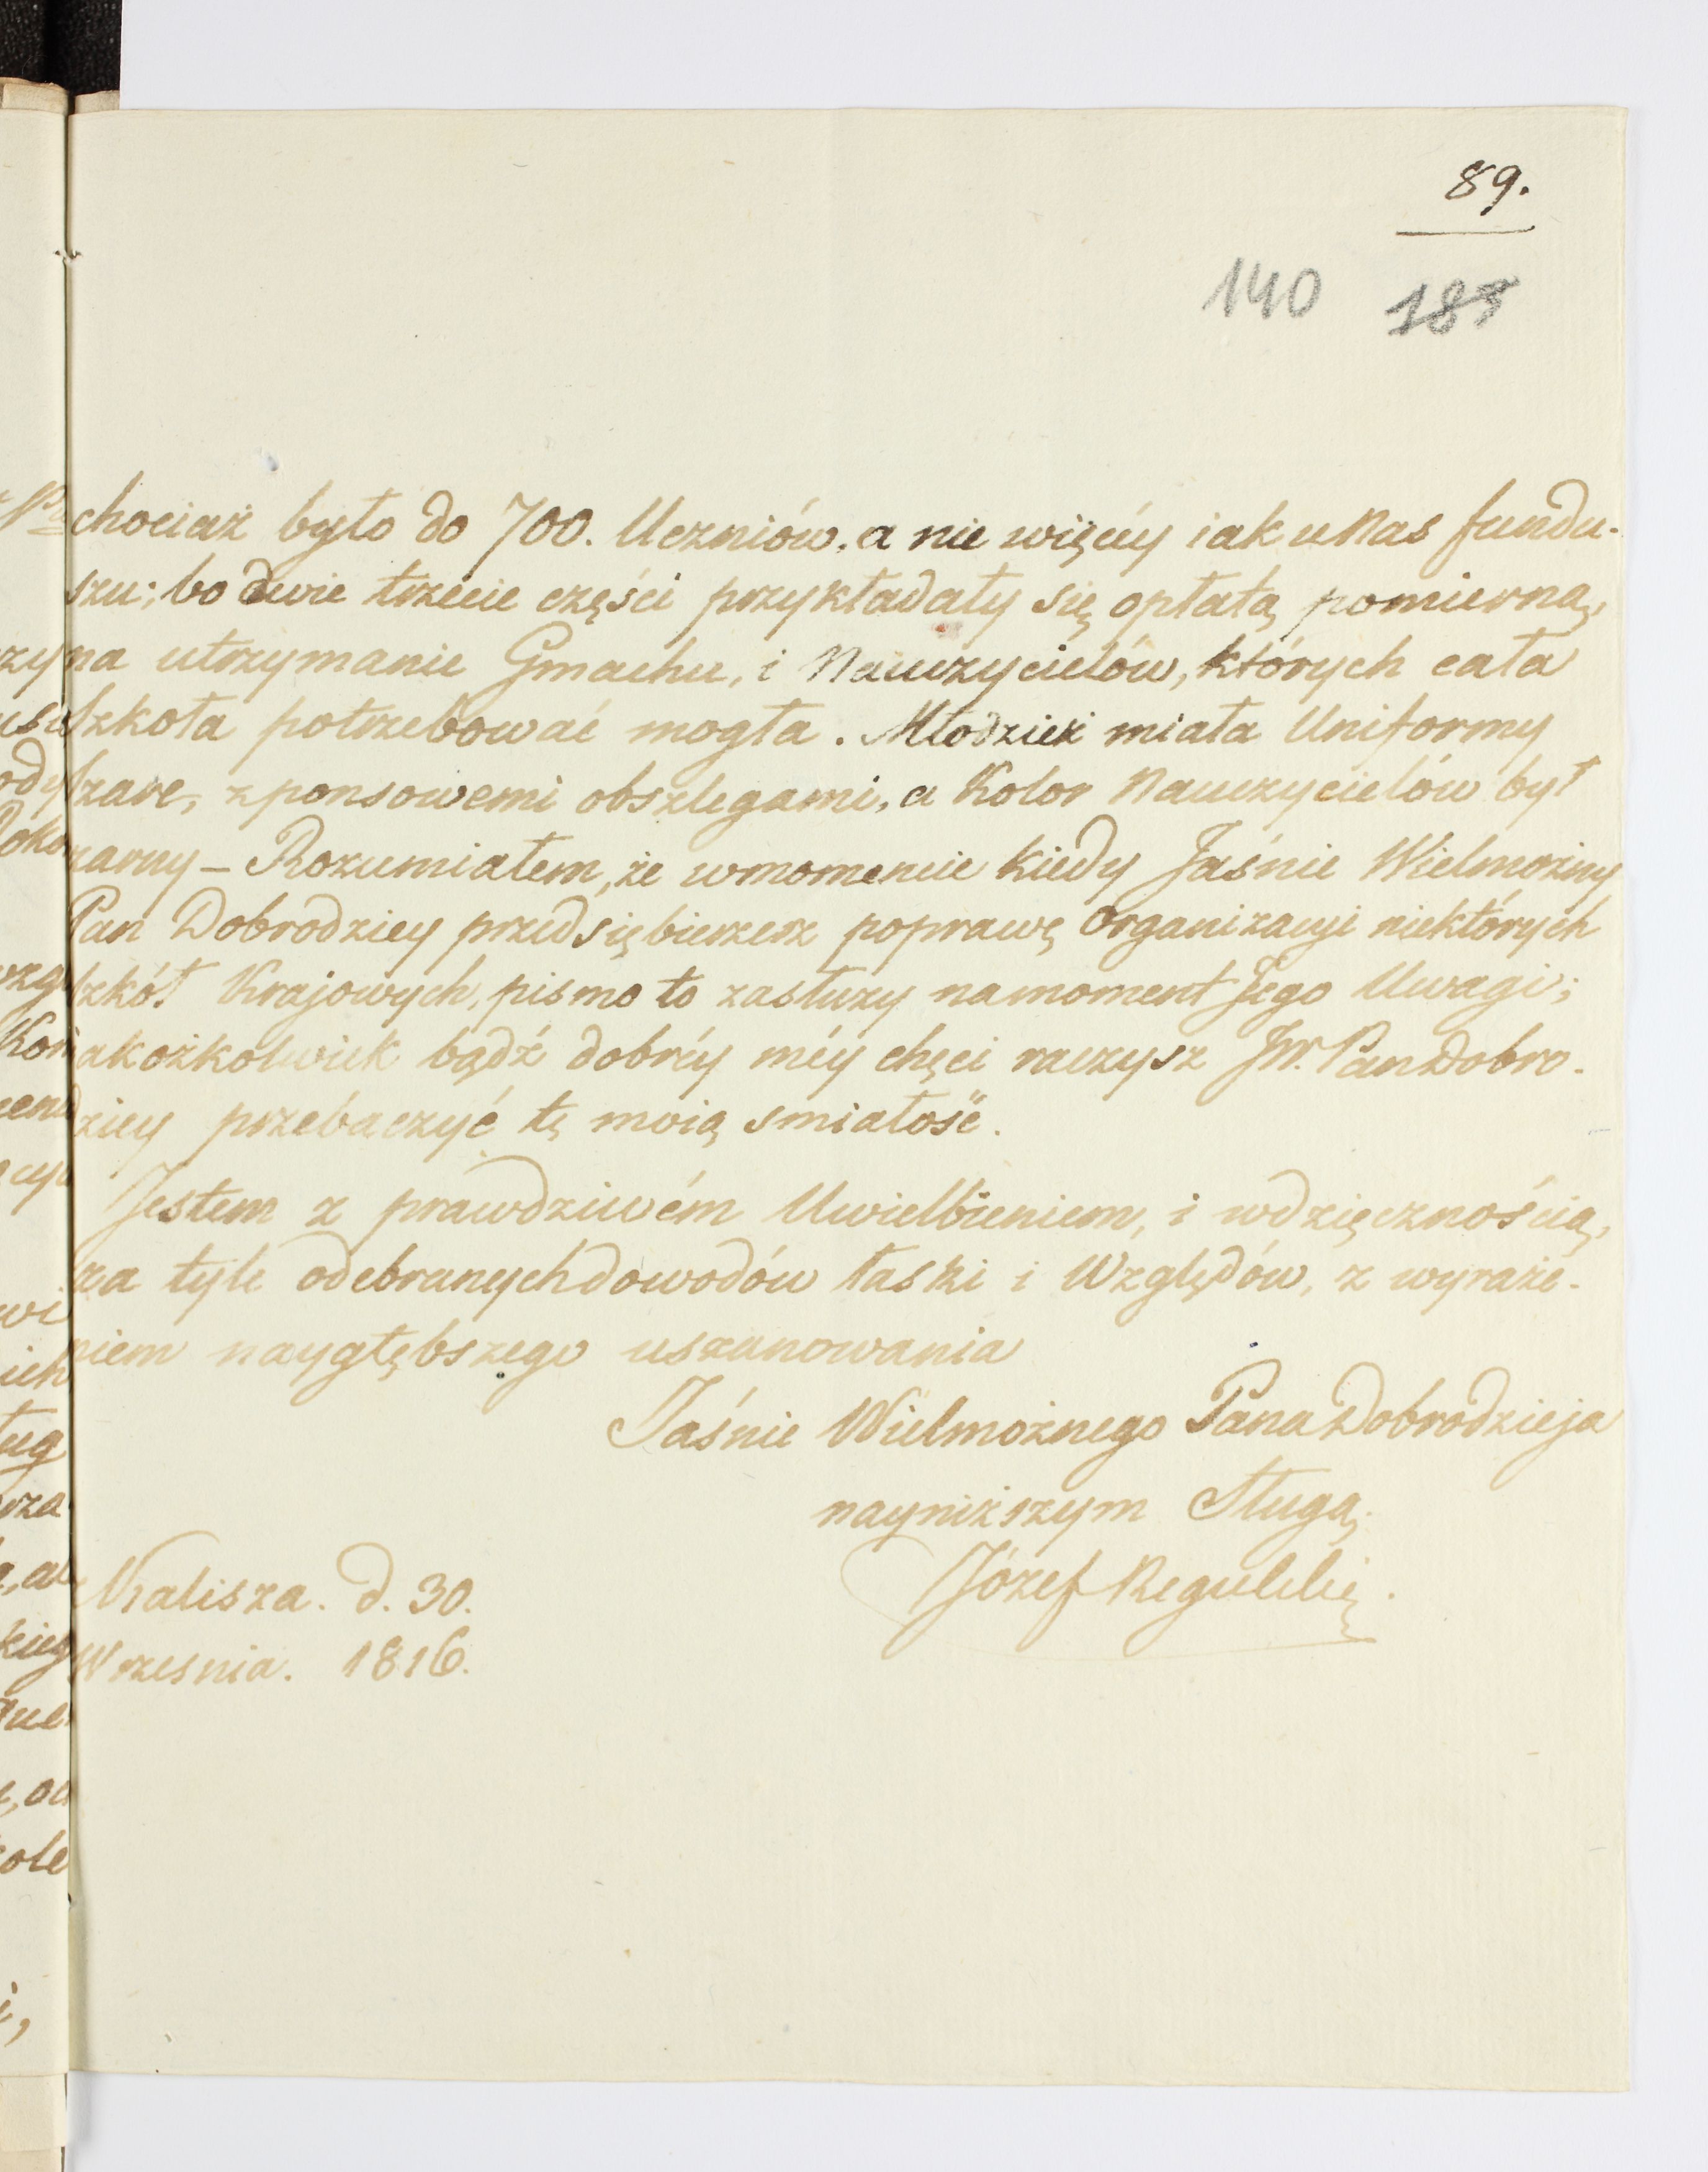 89.
140 187
chociaż było do 700. Uczniów, a nie więcéy iak u Nas fundu-
szu; bo dwie trzecie części przykładały się opłatą pomierną,
na utrzymanie Gmachu, i Nauczycielów, których cała
szkoła potrzebować mogła. Młodzież miała Uniformy
szare, z ponsowemi obszlegami, a Kolor Nauczycielów był
czarny – Rozumiałem, że w momencie kiedy Jaśnie Wielmożny
Pan Dobrodziey przedsiębierzesz poprawę Organizacyi niektórych
szkół Krajowych, pismo to zasłuży na moment Jego Uwagi;
jakożkolwiek bądź dobréy méy chęci raczysz JW. Pan Dobro-
dziey przebaczyć tę moią smiałość.
Jestem z prawdziwém Uwielbieniem, i wdzięcznością,
za tyle odebranych dowodów łaski i Względów, z wyraże-
niem naygłębszego uszanowania
Jaśnie Wielmożnego Pana Dobrodzieja
nayniższym Sługą
Józef Regulski.
z Kalisza. d. 30.
Wrzesnia. 1816.